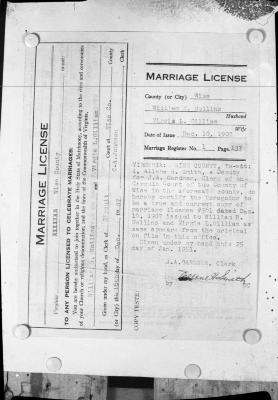 MARRIAGE LICENSE
Virginia Wise County to-wit:
TO ANY PERSON LICENSED TO CELEBRATE MARRIAGES:
You are hereby authorized to join together in the Holy State of Matrimony, according to the rites and ceremonies
of your Church or religious denomination, and the laws of the Commonwealth of Virginia,
and
Given under my hand, as Clerk of Circuit Court of Wise Co.
(or City) this 10th day of Dec. 1907
Clerk
MARRIAGE LICENSE
County (or City) Wise
William R. Mullins
Husband
Virgie L. Gilliam
Wife
Date of Issue Dec. 10, 1907
Marriage Register No. 1 Page 193
VIRGINIA: WISE COUNTY, to-wit:
I, Allene H. Smith, a Deputy
for J.A. Gardner, Clerk of the
Circuit Court of the County of
Wise in the state and county, do
hereby certify the foregoing to
be a true and correct copy of
marriage license #361 dated Dec.
10, 1907 issued to William R.
Mullins and Virgie L. Gilliam as
same appears from the original
on file in this office.
Given under my hand this 25
day of Jan. 1951.
J.A. Gardner, Clerk
by Allene H. Smith DC
COPY TESTE: